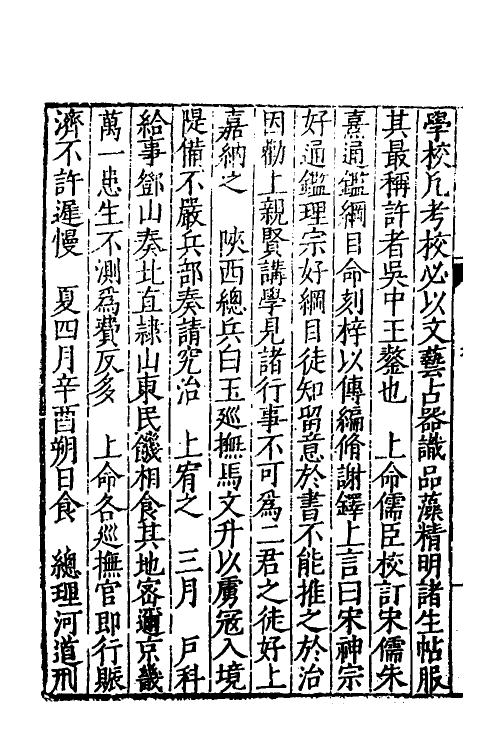 學校凡考校必以文藝占器識品藻精明諸生帖服
其最稱許者吳中王鏊也　上命儒臣校訂宋儒朱
熹通鑑綱目命刻梓以傳編脩謝鐸上言曰宋神宗
好通鑑理宗好綱目徒知留意於書不能推之於治
因勸上親賢講學見諸行事不可為二君之徒好上
嘉納之　陝西總兵白玉廵撫馬文升以虜寇入境
隄備不嚴兵部奏請究治　上宥之　三月　戶科
給事鄧山奏北直隸山東民饑相食其地密邇京畿
萬一患生不測為費反多　上命各廵撫官即行賑
濟不許遲慢　夏四月辛酉朔日食　總理河道刑